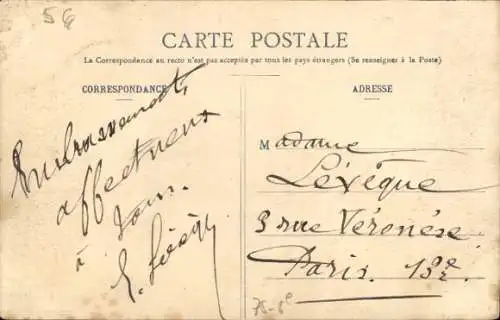 56
CARTE POSTALE
La Correspondance au recto n'est pas acceptée par tous les pays étrangers (Se renseigner à la Poste)
CORRESPONDANCE
Embrassements
affectueux
à tous.
E. Lévêque
ADRESSE
Madame
Lévêque
3 rue Véronèse
Paris. 13e